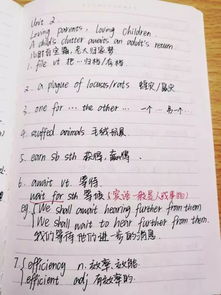 Unit 2.
Loving parents, loving children
A child's clutter awaits an adult's return
儿时百宝箱,老大归家梦
1. file vt 把…归档/存档
2. a plague of locusts/rats 蝗灾/鼠灾
3. one for … the other … 一个… 另一个
4. stuffed animals 毛绒玩具
5. earn sb sth 获得,赢得
6. await vt. 等待
wait for sth 等待(宾语一般是人或事物)
eg. { We shall await hearing further from them
We shall wait to hear further from them.
我们等待他们进一步的消息
7. { efficiency n. 效率,效能
efficient adj 有效率的